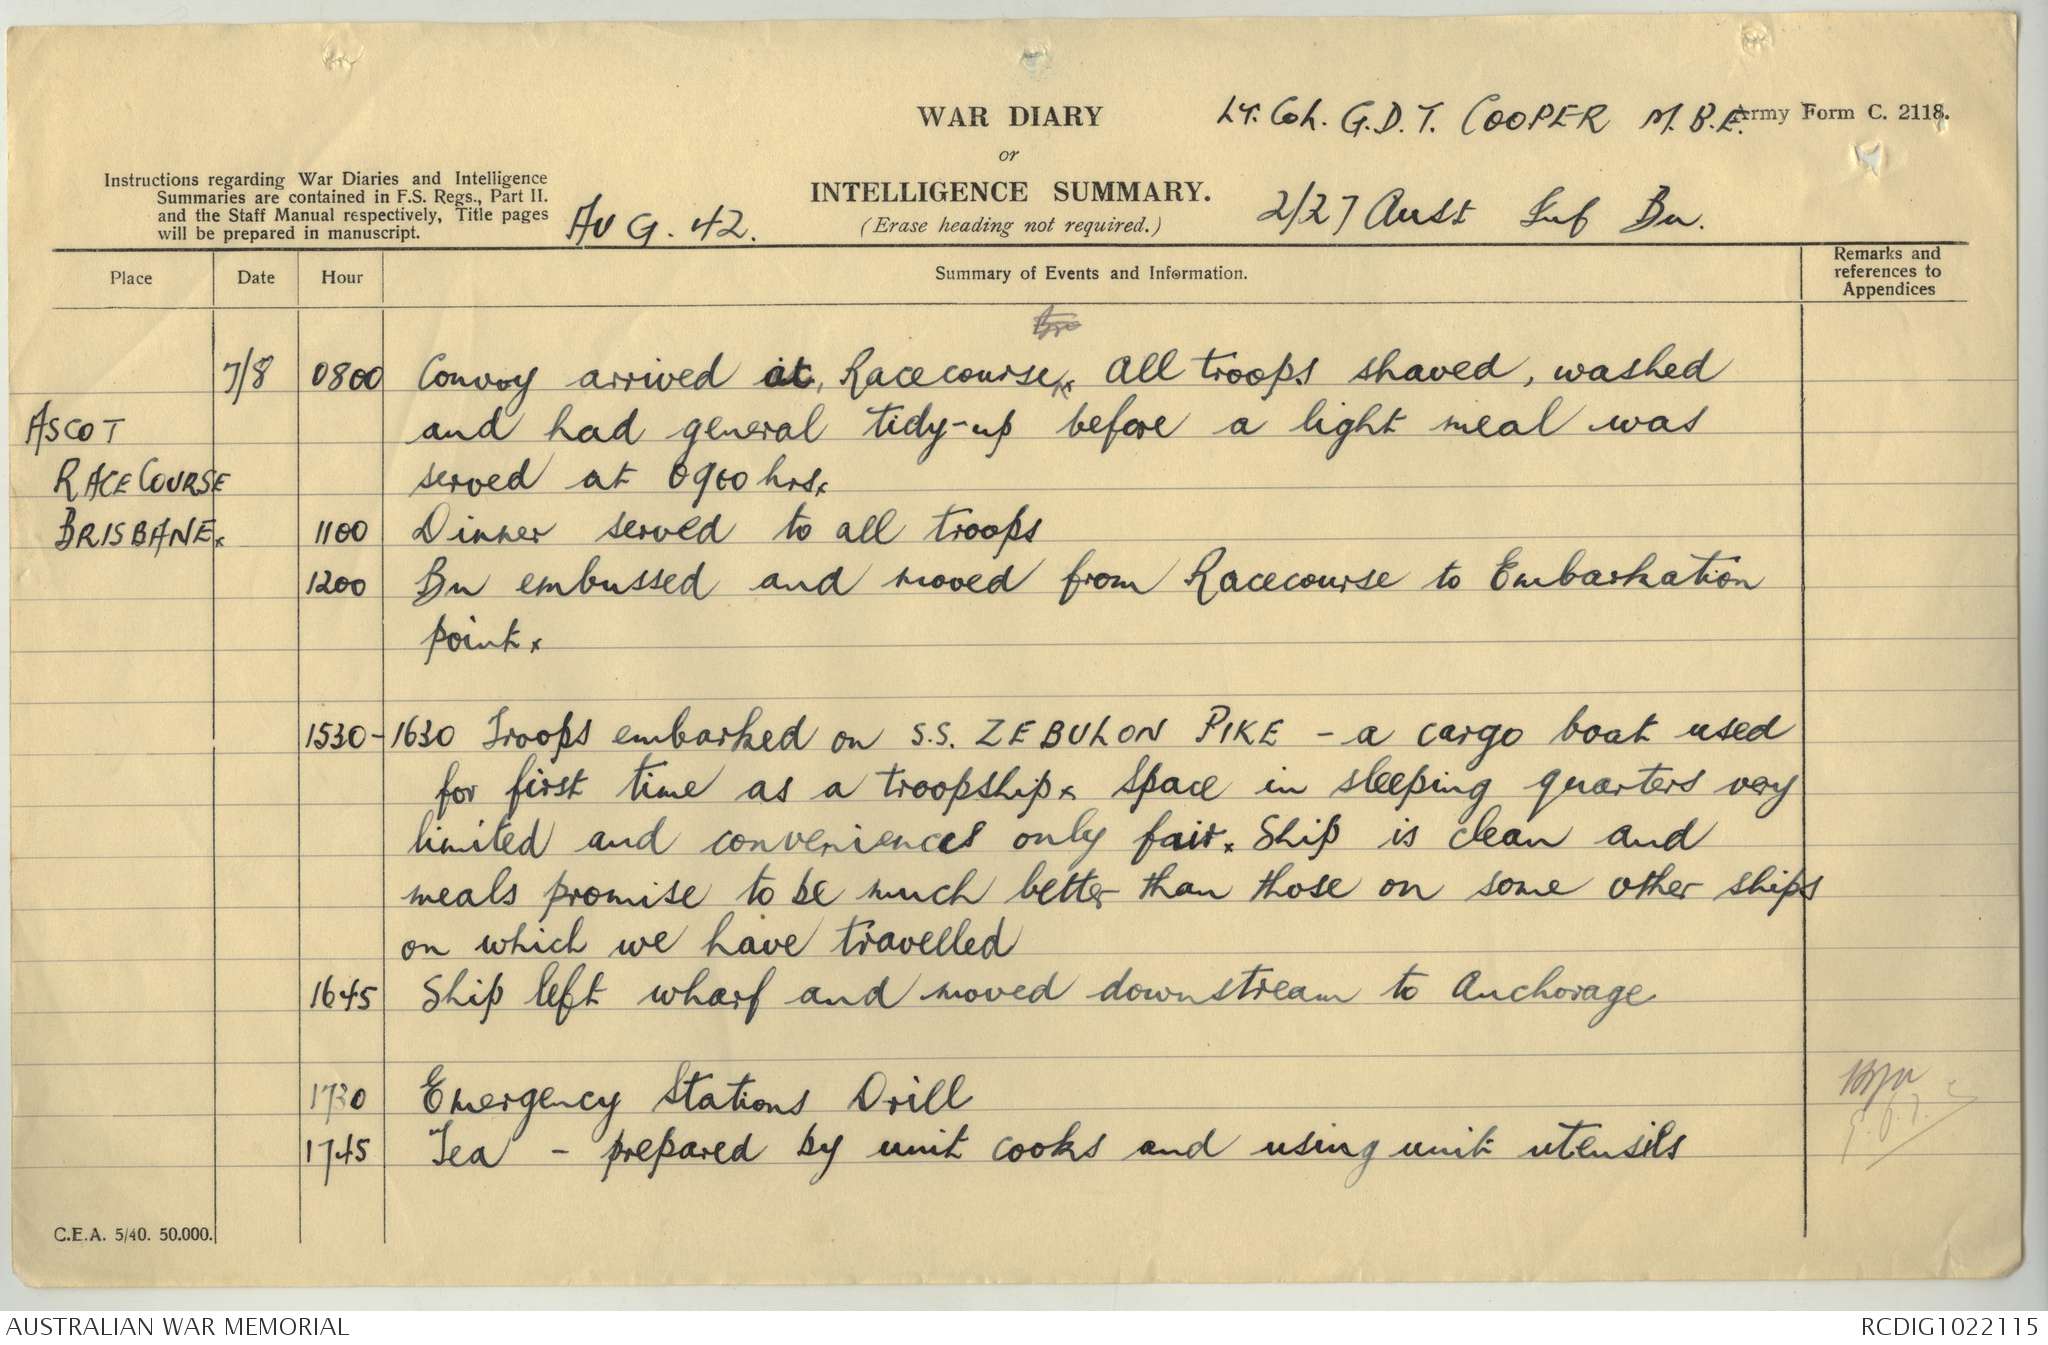 WAR DIARY
or
INTELLIGENCE SUMMARY.
(Erase heading not required.)
Lt. Col. G.D.T. COOPER M.B.E.
Army Form C. 2118.
Instructions regarding War Diaries and Intelligence
Summaries are contained in F.S. Regs., Part II.
and the Staff Manual respectively, Title pages
will be prepared in manuscript.
AUG. 42.
2/27 Aust Inf Bn.
Place Date Hour Summary of Events and Information. Remarks and
references to
Appendices
7/8 0800 Convoy arrived at Racecourse. All troops shaved, washed
ASCOT and had general tidy-up before a light meal was
RACECOURSE served at 0900 hrs.
BRISBANE. 1100 Dinner served to all troops
1200 Bn embussed and moved from Racecourse to Embarkation
point.
1530-1630 Troops embarked on S.S. ZEBULON PIKE - a cargo boat used
for first time as a troopship. Space in sleeping quarters very
limited and conveniences only fair. Ship is clean and
meals promise to be much better than those on some other ships
on which we have travelled
1645 Ship left wharf and moved downstream to Anchorage
1730 Emergency Stations Drill
1745 Tea - prepared by unit cooks and using unit utensils
C.E.A. 5/40. 50.000.
AUSTRALIAN WAR MEMORIAL
RCDIG1022115